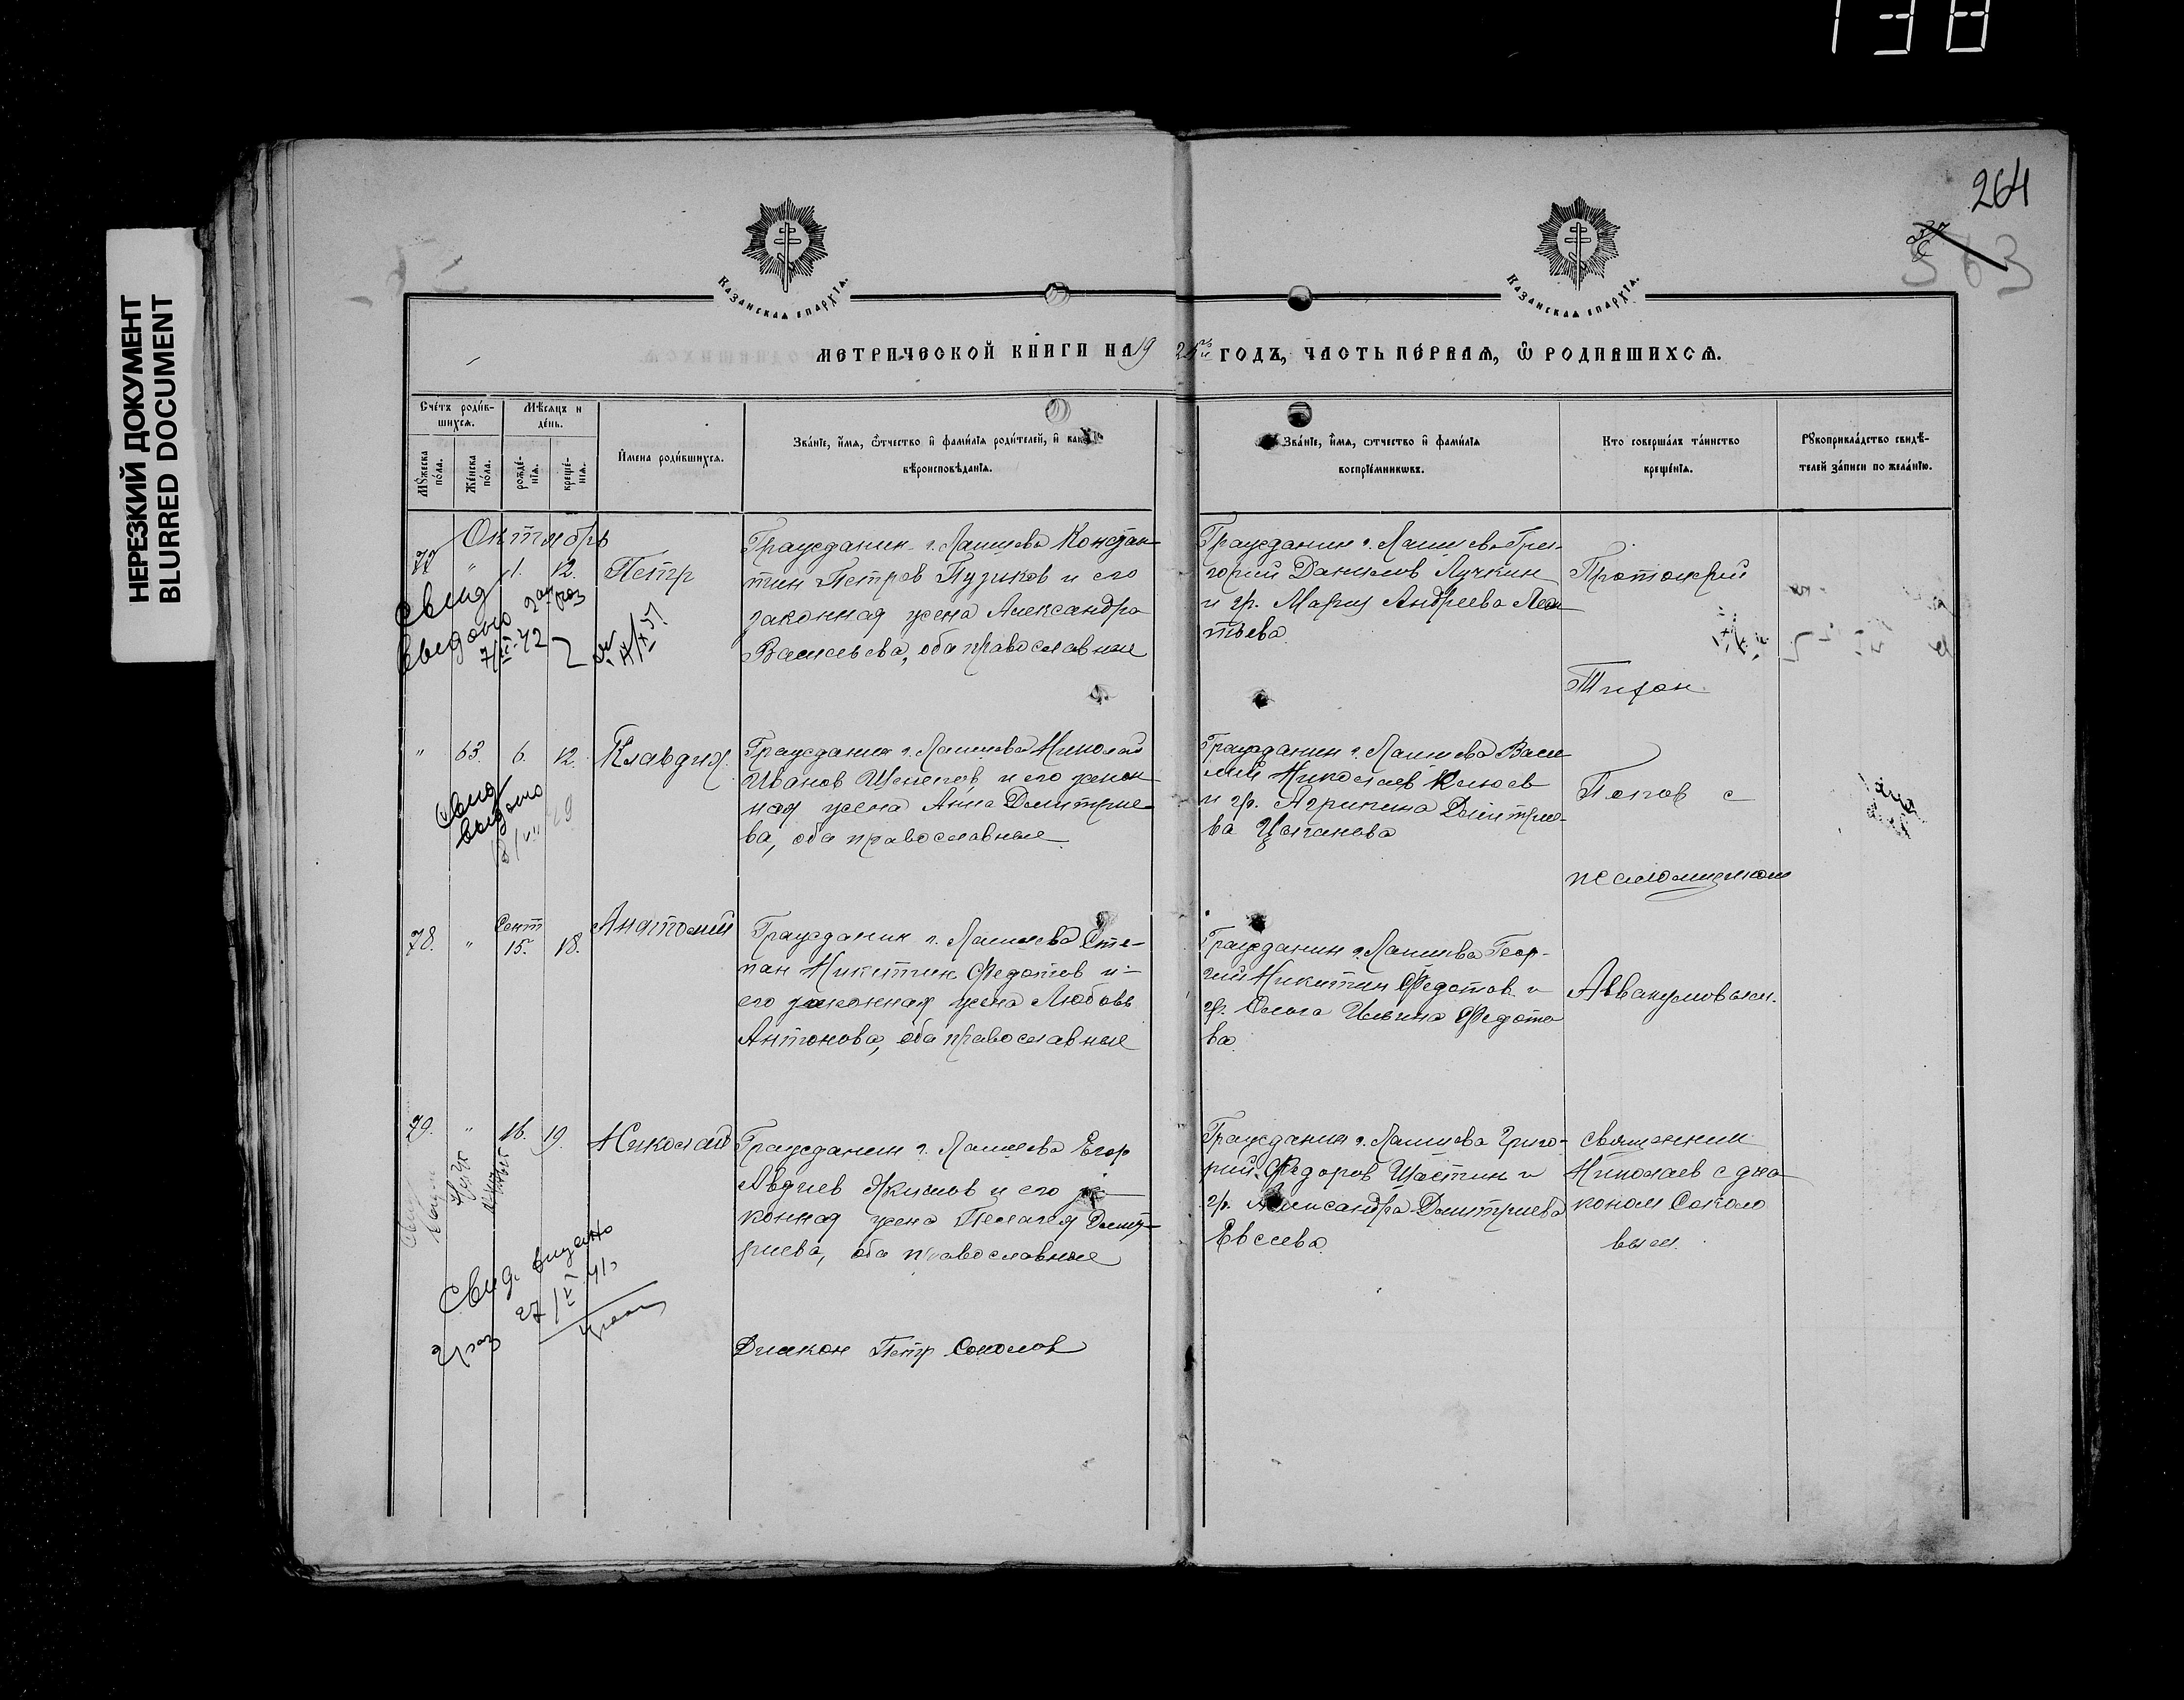 138
НЕРЕЗКИЙ ДОКУМЕНТ
BLURRED DOCUMENT
264
363
Казанская епархїа.
Казанская епархїа.
МЕТРИЧЕСКОЙ КНИГИ НА 19 ГОДЪ, ЧАСТЬ ПЕРВАЯ, Ѿ РОДИВШИХСѦ.
Счетъ родив-
шихсѧ.
Мѣсяцъ и
день.
Мꙋжеска
пола.
Женска
пола.
рожде-
нїѧ.
креще-
нїѧ.
Имена родившихсѧ.
Званїе, имѧ, ѿчество и фамилїѧ родителей, и
вѣроисповѣданїѧ.
Званїе, имѧ, ѿчество и фамилїѧ
воспрїемникѡвъ.
Кто совершалъ таинство
крещенїѧ.
Рꙋкоприкладство свидѣ-
телей записи по желанїю.
Октябрь
77 " 1. 12. Петр
Гражданин г. Лаишева Констан-
тин Петров Пузыков и его
законная жена Александра
Васильева, оба православные
Гражданин г. Лаишева Гри-
горий Данилов Лучкин
и гр. Мария Андреева
тьева.
Протоиерей
Тихон
Свид
выдано
2ой раз
" 63. 6. 12. Клавдия
Гражданин г. Лаишева Николай
Иванов Щепетов и его закон
ная жена Анна Димитрие-
ва, оба православные
Гражданин г. Лаишева Васи
лий Николаев Клюев
и гр. Агрипина Димитрие-
ва Цыганова
Попов с
псаломщиком
Свид
выдано
78. " Сент 15. 18. Анатолий
Гражданин г. Лаишева Сте-
пан Никитин Федотов и
его законная жена Любовь
Антонова, оба православные
Гражданин г. Лаишева Геор-
гий Никитин Федотов и
гр. Ольга Ильина Федото
ва.
Аввакумовым.
79. " 16. 19. Николай
Гражданин г. Лаишева Егор
Авдиев Якимов и его за-
конная жена Пелагея Димит-
риева, оба православные
Гражданин г. Лаишева Григо-
рий Федоров Шастин и
гр. Александра Димитриева
Евсеева.
Священник
Николаев с диа
коном Соколо
вым.
Свид. выдано
27/V 41г
2 раз
Диакон Петр Соколов